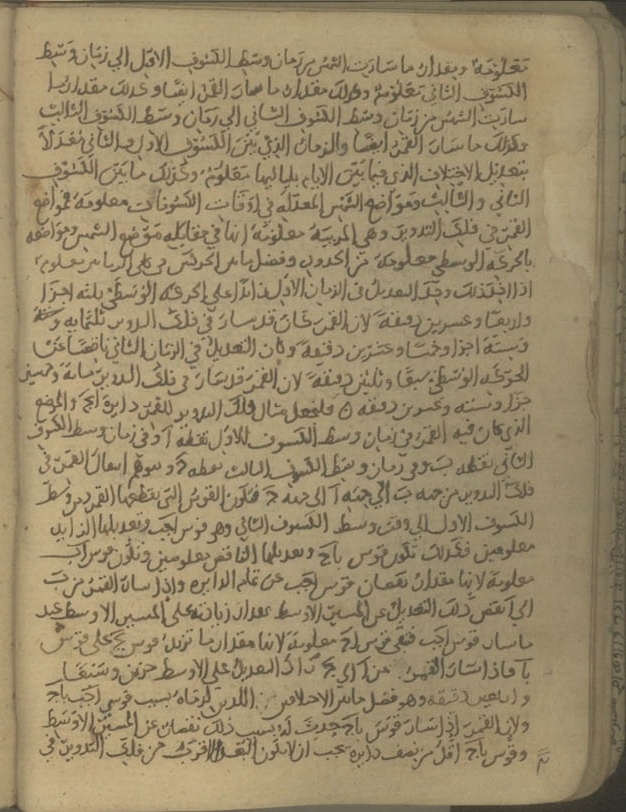 معلومة ومقدار ما سارت الشمس من زمان وسط الكسوف الاول الى زمان وسط
الكسوف الثانى معلومة وكذلك مقدار ما سار القمر ايضا وكذلك مقدار ما
سارت الشمس من زمان وسط الكسوف الثانى الى زمان وسط الكسوف الثالث
وكذلك ما سار القمر ايضا والزمان الذى بين الكسوف الاول والثانى معدلا
بتعديل الاختلاف الذى فيما بين الايام بلياليها معلوم وكذلك ما بين الكسوف
الثانى والثالث ومواضع الشمس المعدلة فى اوقات الكسوفات معلومة فمواضع
القمر فى فلك التدوير وهى المرىية معلومة لانها فى مقابلة موضع الشمس ومواضعه
بالحركة الوسطى معلومة من الجدول وفضل ما بين الحركتين فى كلى الزمانين معلوم
اذا اخذ ذلك وجد التعديل فى الزمان الاول زائدا على الحركة الوسطى ثلثة اجزا
واربعا وعشرين دقيقة لان القمر كان قد سار فى فلك التدوير ثلثماية وستة
وستة اجزا وخمسا وعشرين دقيقة وكان التعديل فى الزمان الثانى ناقصا عن
الحركة الوسطى سبعا وثلثين دقيقة لان القمر قد سار فى فلك التدوير ماية وخمسين
جزا وستة وعشرين دقيقة فلنجعل مثال فلك التدوير للقمر دايرة ابج والموضع
الذى كان فيه القمر فى زمان وسط الكسوف الاول نقطة آ وفى زمان وسط الكسوف
الثانى نقطة ب وفى زمان وسط الكسوف الثالث نقطة ج ونتوهم انتقال القمر فى
فلك التدوير من جهة ب الى جهة آ الى جهة ج فتكون القوس التى يقطعها القمر من وسط
الكسوف الاول الى وقت وسط الكسوف الثانى وهو قوس اجب وتعديلها الزايد
معلومين فكذلك تكون قوس باج وتعديلها الناقص معلومين وتكون قوس اب
معلومة لانها مقدار نقصان قوس اجب عن تمام الدايرة واذا سار القمر من ب
الى آ نقص ذلك التعديل عن المسير الاوسط بمقدار زيادته على المسير الاوسط عند
ما سار قوس اجب فتبقى قوس اج معلومة لانها مقدار ما تزيد قوس بج على قوس
با فاذا سار القمر من آ الى ج زاد التعديل على الاوسط جزين وسبعا
و دقيقة وهو فضل ما بين الاختلافين اللذين لزماه بسبب قوسى اجب باج
ولان القمر اذا سار قوس باج حدث له بسبب ذلك نقصان عن المسير الاوسط
وقوس باج اقل من نصف دايرة يجب ان لا يكون البعد الاقرب من فلك التدوير فى